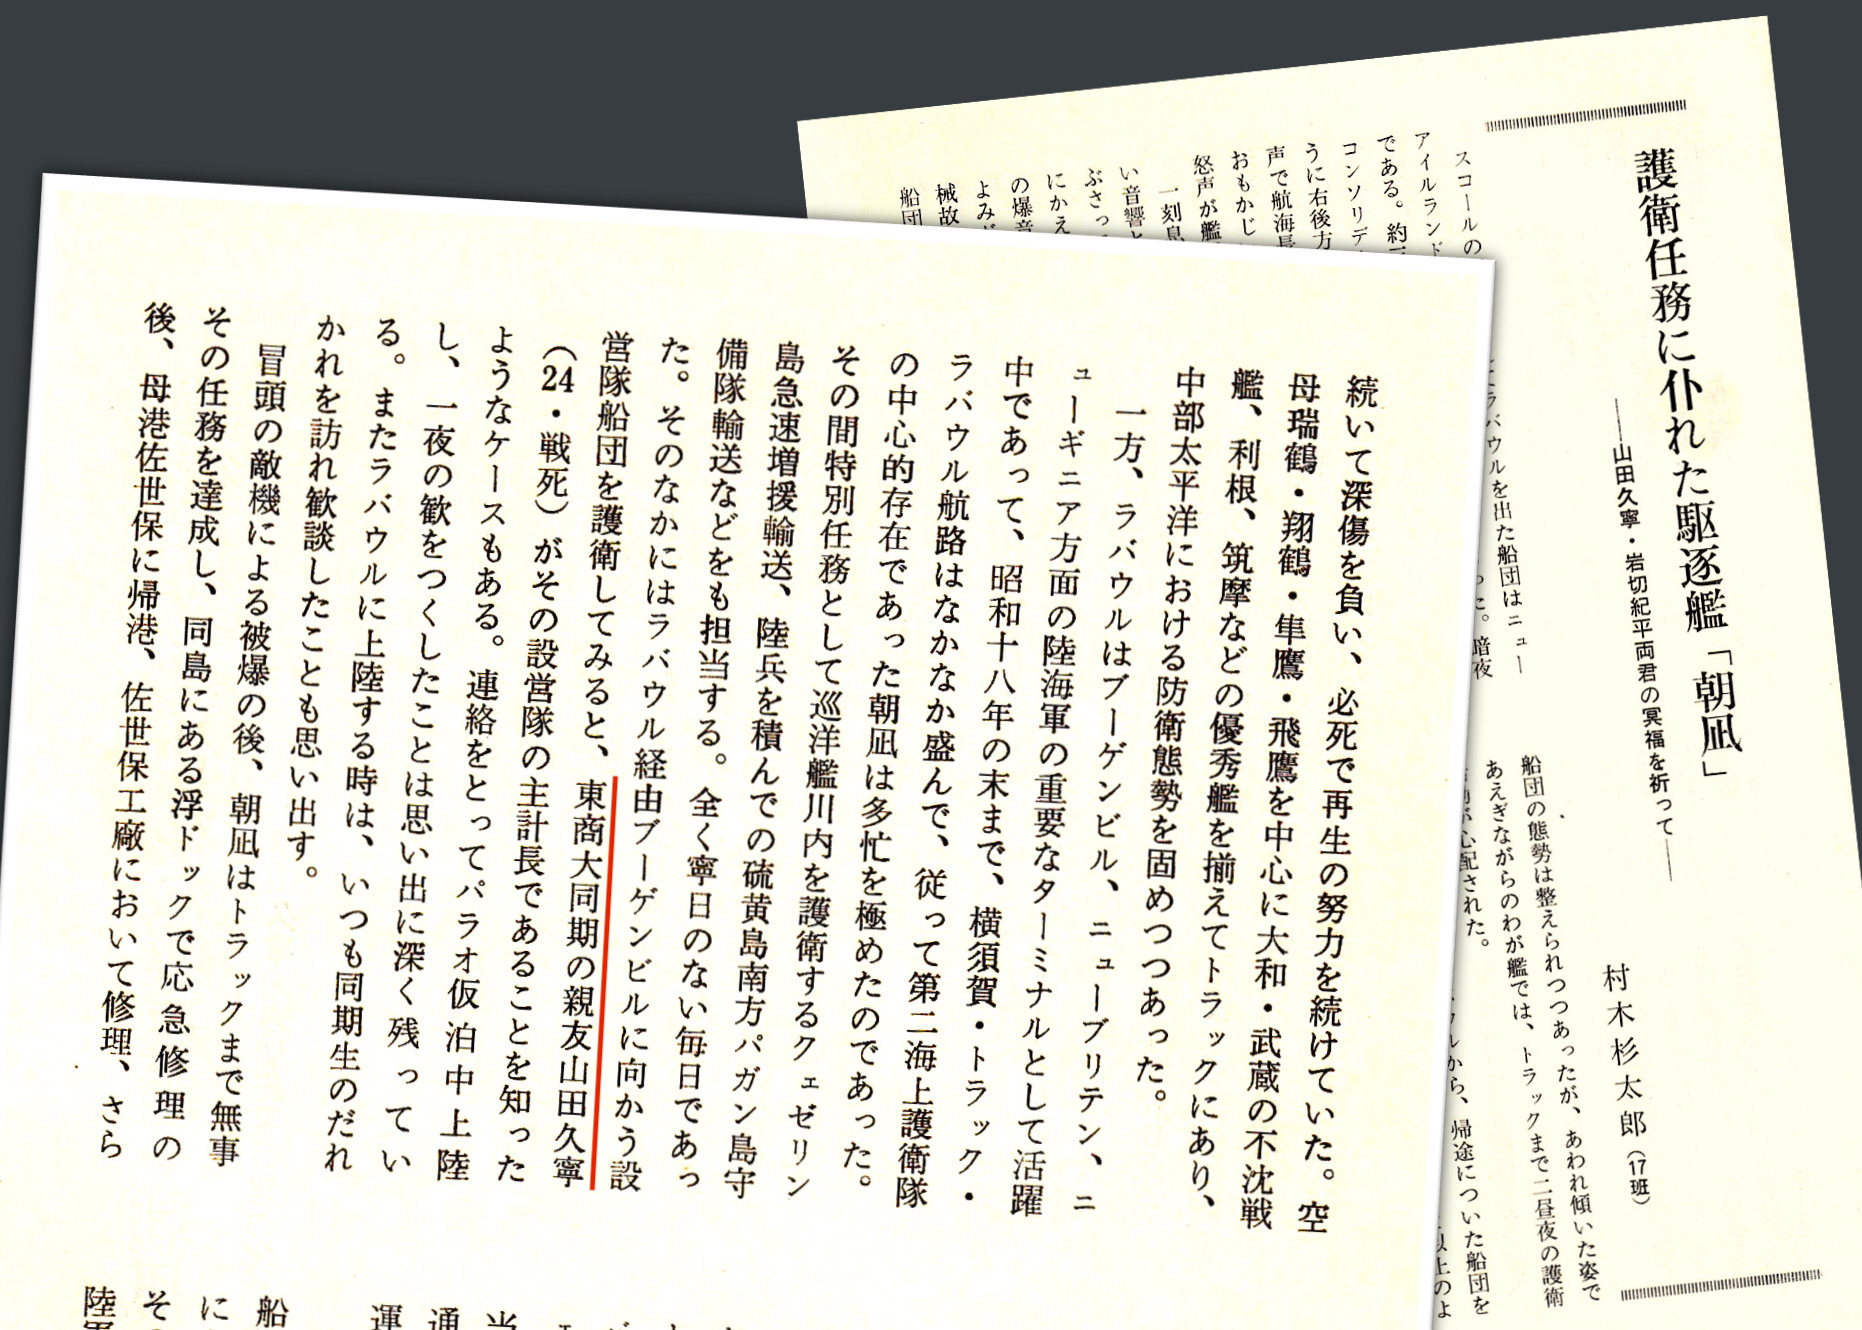 護衛任務に仆れた駆逐艦「朝凪」
――山田久寧・岩切紀平両君の冥福を祈って――
村木杉太郎(17班)
スコールの
アイルランド
である。約
コンソリデ
うに右後方
声で航海長
おもかじ
怒声が艦
一刻息
い音響と
ぶさっ
にかえ
の爆音
よみ
械故
船団
ラバウルを出た船団はニュー
った。暗夜
船団の態勢は整えられつつあったが、あわれ傾いた姿で
あえぎながらのわが艦では、トラックまで二昼夜の護衛
が心配された。
ウルから、帰途についた船団を
以上のよ
続いて深傷を負い、必死で再生の努力を続けていた。空
母瑞鶴・翔鶴・隼鷹・飛鷹を中心に大和・武蔵の不沈戦
艦、利根、筑摩などの優秀艦を揃えてトラックにあり、
中部太平洋における防衛態勢を固めつつあった。
一方、ラバウルはブーゲンビル、ニューブリテン、ニ
ューギニア方面の陸海軍の重要なターミナルとして活躍
中であって、昭和十八年の末まで、横須賀・トラック・
ラバウル航路はなかなか盛んで、従って第二海上護衛隊
の中心的存在であった朝凪は多忙を極めたのであった。
その間特別任務として巡洋艦川内を護衛するクェゼリン
島急速増援輸送、陸兵を積んでの硫黄島南方パガン島守
備隊輸送などをも担当する。全く寧日のない毎日であっ
た。そのなかにはラバウル経由ブーゲンビルに向かう設
営隊船団を護衛してみると、東商大同期の親友山田久寧
(24・戦死)がその設営隊の主計長であることを知った
ようなケースもある。連絡をとってパラオ仮泊中上陸
し、一夜の歓をつくしたことは思い出に深く残ってい
る。またラバウルに上陸する時は、いつも同期生のだれ
かれを訪れ歓談したことも思い出す。
冒頭の敵機による被爆の後、朝凪はトラックまで無事
その任務を達成し、同島にある浮ドックで応急修理の
後、母港佐世保に帰港、佐世保工廠において修理、さら
当
通
運
船
に
そ
陸軍